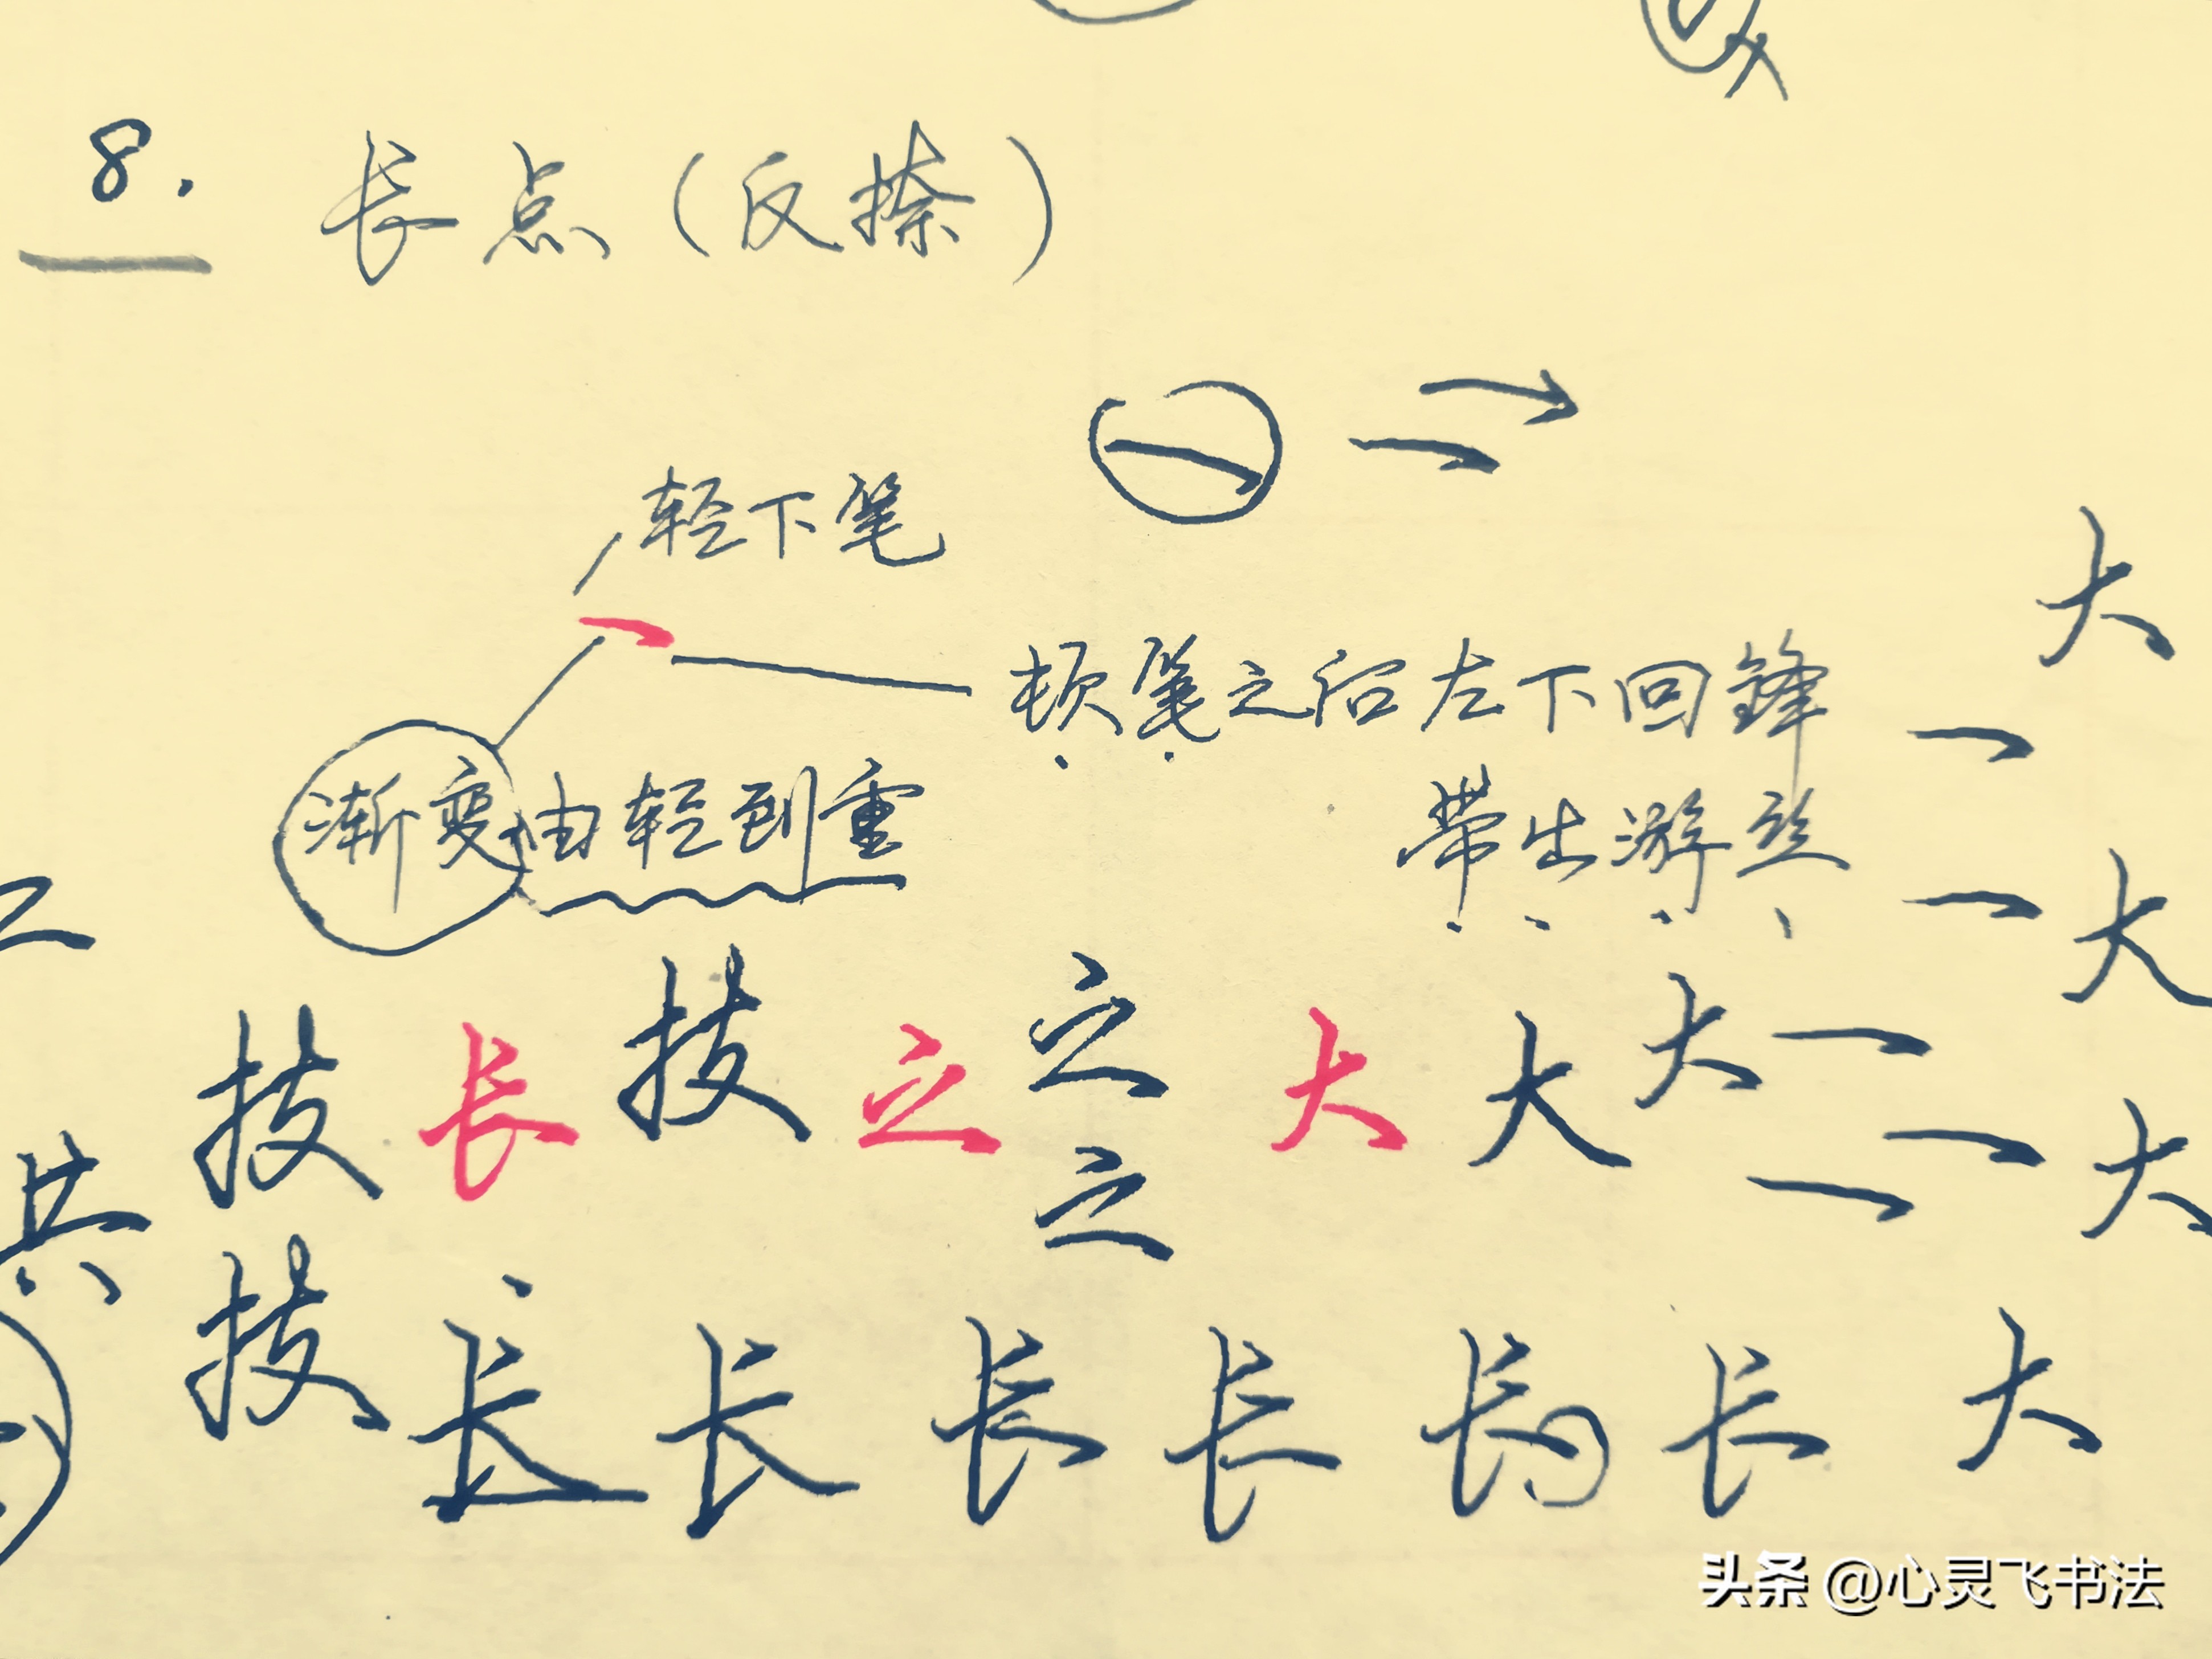 8. 长点(反捺)
轻下笔
顿笔之后左下回锋
渐变由轻到重
带出游丝
大
大
技 长 技 之 之 大 大 大
之
大
共
技 长 长 长 长 长 长 大
头条 @心灵飞书法